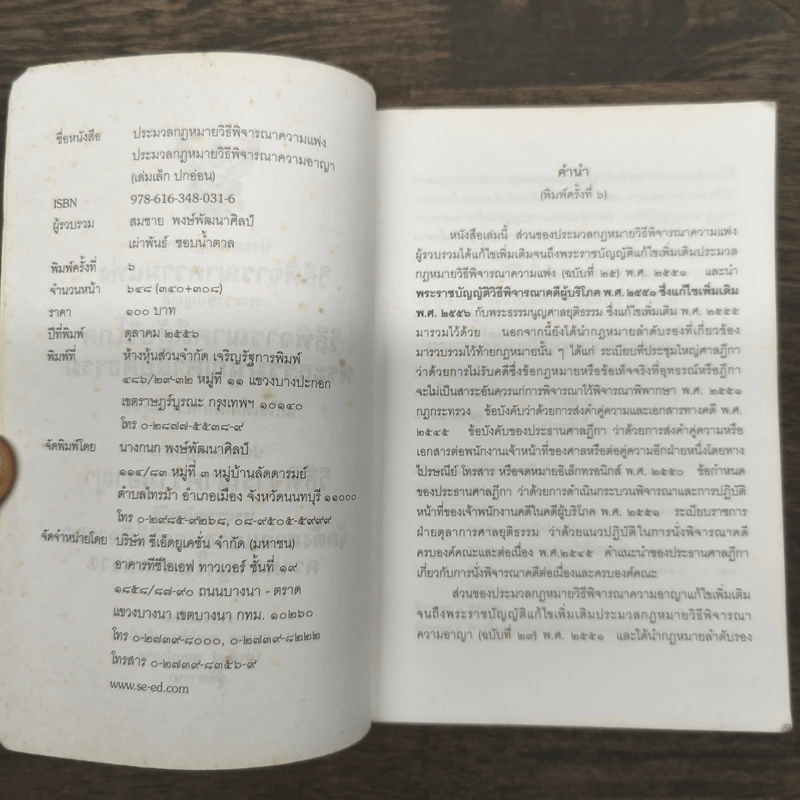 ชื่อหนังสือ ประมวลกฎหมายวิธีพิจารณาความแพ่ง
ประมวลกฎหมายวิธีพิจารณาความอาญา
(เล่มเล็ก ปกอ่อน)
ISBN 978-616-348-031-6
ผู้รวบรวม สมชาย พงษ์พัฒนาศิลป์
เผ่าพันธ์ ชอบน้ำตาล
พิมพ์ครั้งที่ ๖
จำนวนหน้า ๖๔๘ (๓๔๐+๓๐๘)
ราคา ๑๐๐ บาท
ปีที่พิมพ์ ตุลาคม ๒๕๕๖
พิมพ์ที่ ห้างหุ้นส่วนจำกัด เจริญรัฐการพิมพ์
๔๘๖/๒๙-๓๒ หมู่ที่ ๑๑ แขวงบางปะกอก
เขตราษฎร์บูรณะ กรุงเทพฯ ๑๐๑๔๐
โทร ๐-๒๘๗๗-๕๕๓๘-๙
จัดพิมพ์โดย นางกนก พงษ์พัฒนาศิลป์
๑๑๔/๘๓ หมู่ที่ ๓ หมู่บ้านลัดดารมย์
ตำบลไทรม้า อำเภอเมือง จังหวัดนนทบุรี ๑๑๐๐๐
โทร ๐-๒๙๘๕-๙๒๖๘, ๐๘-๙๕๐๕-๕๙๙๙
จัดจำหน่ายโดย บริษัท ซีเอ็ดยูเคชั่น จำกัด (มหาชน)
อาคารทีซีไอเอฟ ทาวเวอร์ ชั้นที่ ๑๙
๑๘๕๘/๘๗-๙๐ ถนนบางนา - ตราด
แขวงบางนา เขตบางนา กทม. ๑๐๒๖๐
โทร ๐-๒๗๓๙-๘๐๐๐, ๐-๒๗๓๙-๘๒๒๒
โทรสาร ๐-๒๗๓๙-๘๓๕๖-๙
www.se-ed.com
คำนำ
(พิมพ์ครั้งที่ ๖)
หนังสือเล่มนี้ ส่วนของประมวลกฎหมายวิธีพิจารณาความแพ่ง
ผู้รวบรวมได้แก้ไขเพิ่มเติมจนถึงพระราชบัญญัติแก้ไขเพิ่มเติมประมวล
กฎหมายวิธีพิจารณาความแพ่ง (ฉบับที่ ๒๕) พ.ศ. ๒๕๕๑ และนำ
พระราชบัญญัติวิธีพิจารณาคดีผู้บริโภค พ.ศ. ๒๕๕๑ ซึ่งแก้ไขเพิ่มเติม
พ.ศ. ๒๕๕๖ กับพระธรรมนูญศาลยุติธรรม ซึ่งแก้ไขเพิ่มเติม พ.ศ. ๒๕๕๕
มารวมไว้ด้วย นอกจากนี้ยังได้นำกฎหมายลำดับรองที่เกี่ยวข้อง
มารวบรวมไว้ท้ายกฎหมายนั้น ๆ ได้แก่ ระเบียบที่ประชุมใหญ่ศาลฎีกา
ว่าด้วยการไม่รับคดีซึ่งข้อกฎหมายหรือข้อเท็จจริงที่อุทธรณ์หรือฎีกา
จะไม่เป็นสาระอันควรแก่การพิจารณาไว้พิจารณาพิพากษา พ.ศ. ๒๕๕๑
กฎกระทรวง ข้อบังคับว่าด้วยการส่งคำคู่ความและเอกสารทางคดี พ.ศ.
๒๕๔๕ ข้อบังคับของประธานศาลฎีกา ว่าด้วยการส่งคำคู่ความหรือ
เอกสารต่อพนักงานเจ้าหน้าที่ของศาลหรือต่อคู่ความอีกฝ่ายหนึ่งโดยทาง
ไปรษณีย์ โทรสาร หรือจดหมายอิเล็กทรอนิกส์ พ.ศ. ๒๕๕๐ ข้อกำหนด
ของประธานศาลฎีกา ว่าด้วยการดำเนินกระบวนพิจารณาและการปฏิบัติ
หน้าที่ของเจ้าพนักงานคดีในคดีผู้บริโภค พ.ศ. ๒๕๕๑ ระเบียบราชการ
ฝ่ายตุลาการศาลยุติธรรม ว่าด้วยแนวปฏิบัติในการนั่งพิจารณาคดี
ครบองค์คณะและต่อเนื่อง พ.ศ.๒๕๔๕ คำแนะนำของประธานศาลฎีกา
เกี่ยวกับการนั่งพิจารณาคดีต่อเนื่องและครบองค์คณะ
ส่วนของประมวลกฎหมายวิธีพิจารณาความอาญาแก้ไขเพิ่มเติม
จนถึงพระราชบัญญัติแก้ไขเพิ่มเติมประมวลกฎหมายวิธีพิจารณา
ความอาญา (ฉบับที่ ๒๙) พ.ศ. ๒๕๕๑ และได้นำกฎหมายลำดับรอง